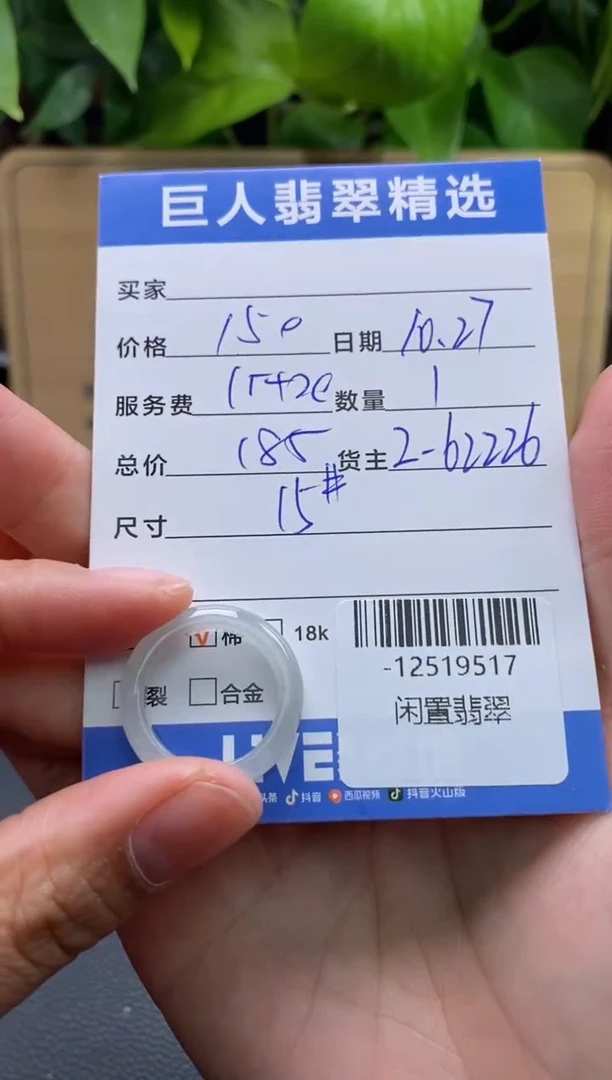 巨人翡翠精选
买家
价格 150 日期 10.27
服务费 15+20 数量 1
总价 185 货主 2-62226
尺寸 15#
棉 18k
裂 合金
-12519517
闲置翡翠
LIVE
头条 抖音 西瓜视频 抖音火山版